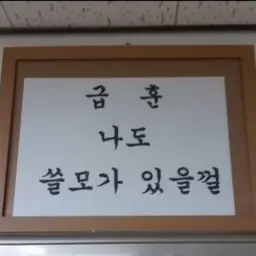 급 훈
나도
쓸모가 있을껄